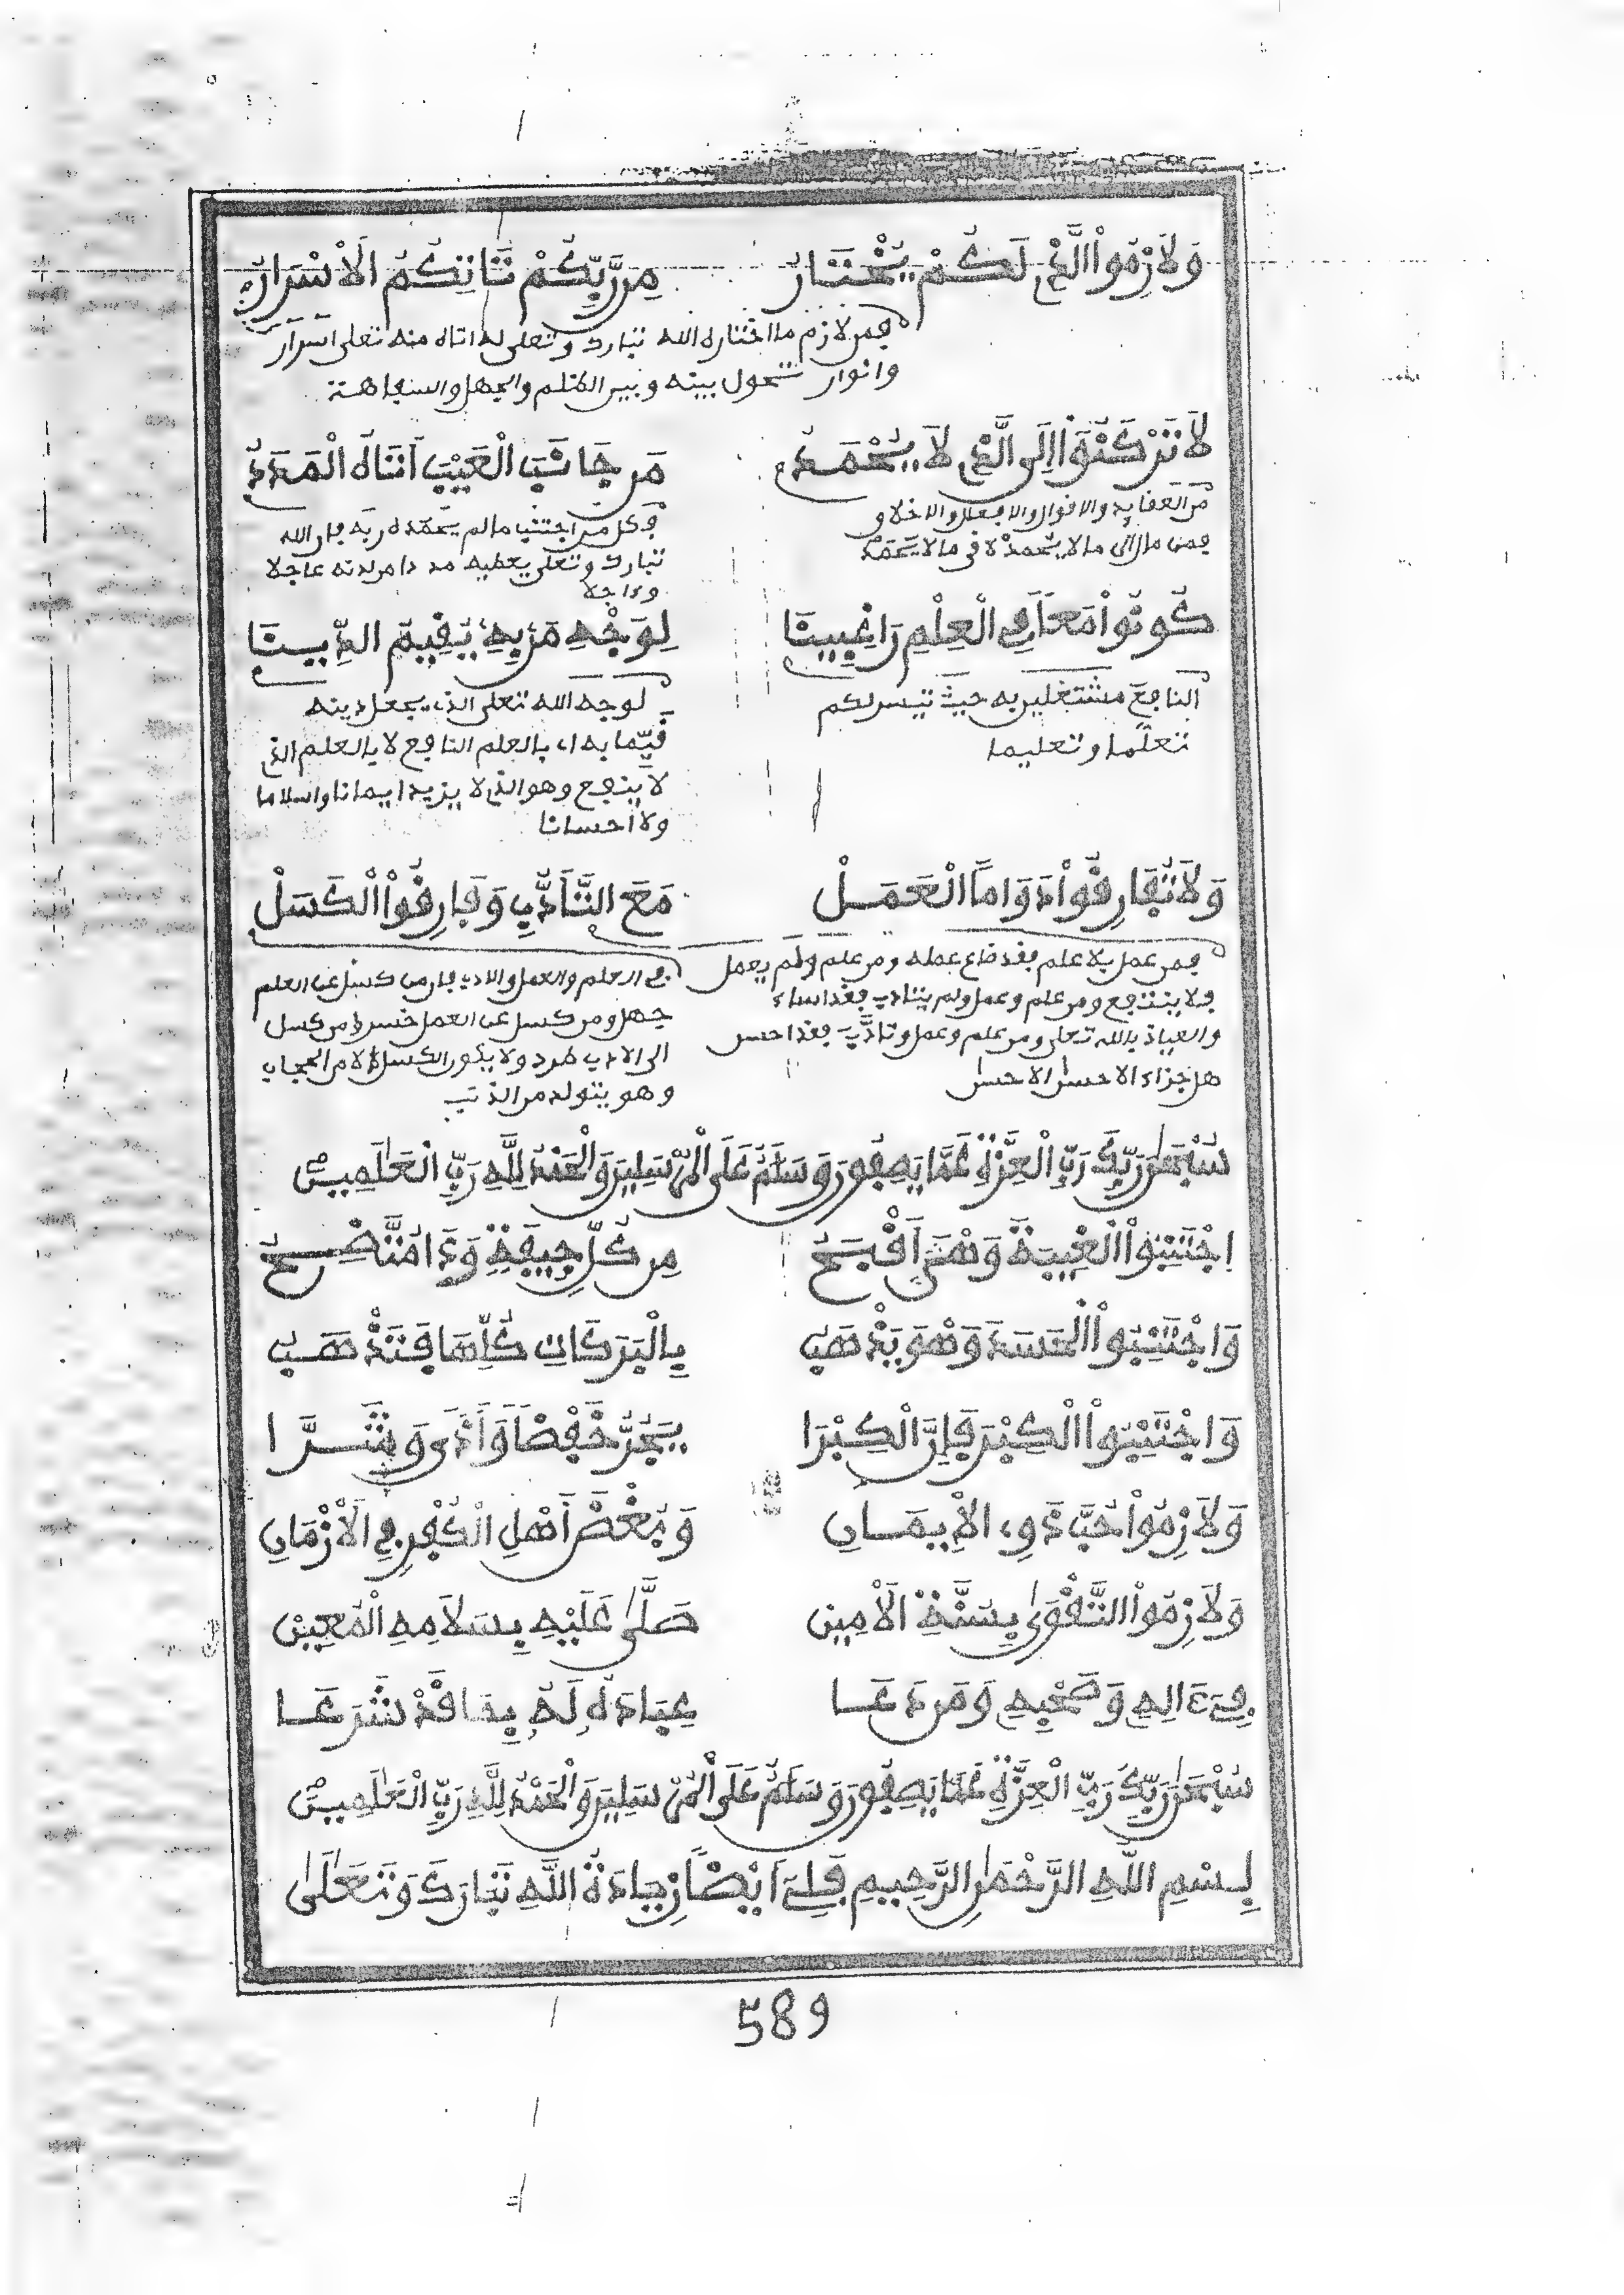 وَلَازِمُوا الَّذِي لَكُمْ يُخْتَارُ مِن رَّبِّكُمْ تَاتِكُمُ الْأَسْرَارُ
فمن لازم ما اختاره الله تبارك وتعلى له اتاه منه تعلى اسرار
وانوار تحول بينه وبين الظلم والجهل والسفاهة
لَا تَرْكَنُوا إِلَى الَّذِي لَا يُحْمَدُ مَن جَانَبَ الْعَيْبَ أَتَاهُ الْمَدَدُ
من العقايد والاقوال والافعال والاخلاق
فمن مال الى ما لا يحمد لاقى ما لا يحمد
فكل من اجتنب ما لم يحمده ربه فان الله
تبارك وتعلى يعطيه مددا من لدنه عاجلا
وءاجلا
كُونُوا مَعًا فِي الْعِلْمِ رَاغِبِينَا لِوَجْهِ مَن بِهِ يُقِيمُ الدِّينَا
النافع مشتغلين به حيث تيسر لكم
تعلما وتعليما
لوجه الله تعلى الذي يجعل دينه
قيما به اي بالعلم النافع لا بالعلم الذي
لا ينفع وهو الذي لا يزيد ايمانا واسلاما
ولا احسانا
وَلَا تُفَارِقُوا دَوَامًا الْعَمَلْ مَعَ التَّأَدُّبِ وَفَارِقُوا الْكَسَلْ
فمن عمل بلا علم فقد ضاع عمله ومن علم ولم يعمل
فلا ينتفع ومن علم وعمل ولم يتادب فقد اساء
والعياذ بالله تعلى ومن علم وعمل وتادب فقد احسن
هل جزاء الاحسن الا الاحسن
في العلم والعمل والادب فان من كسل عن العلم
جهل ومن كسل عن العمل خسر ومن كسل
الى الادب طرد ولا يكون الكسل الا من الحجاب
وهو يتولد من الذنب
سُبْحَٰنَ رَبِّكَ رَبِّ الْعِزَّةِ عَمَّا يَصِفُونَ وَسَلَٰمٌ عَلَى الْمُرْسَلِينَ وَالْحَمْدُ لِلَّهِ رَبِّ الْعَٰلَمِينَ
اِجْتَنِبُوا الْغِيبَةَ وَهْيَ أَقْبَحُ مِن كُلِّ جِيفَةٍ وَذَا مُتَّضِحُ
وَاجْتَنِبُوا الْحَسَدَ وَهْوَ يَذْهَبُ بِالْبَرَكَاتِ كُلِّهَا فَتَذْهَبُ
وَاجْتَنِبُوا الْكِبْرَ فَإِنَّ الْكِبْرَا يَجُرُّ خَفْضًا وَأَذًى وَشَرَّا
وَلَازِمُوا حُبَّ ذَوِي الْإِيمَانِ وَبُغْضَ أَهْلِ الْكُفْرِ فِي الْأَزْمَانِ
وَلَازِمُوا التَّقْوَىٰ بِسُنَّةِ الْأَمِينْ صَلَّىٰ عَلَيْهِ بِسَلَامِهِ الْمُعِينْ
فِي ءَالِهِ وَصَحْبِهِ وَمَن دَعَا عِبَادَهُ لَهُ بِمَا قَدْ شَرَعَا
سُبْحَٰنَ رَبِّكَ رَبِّ الْعِزَّةِ عَمَّا يَصِفُونَ وَسَلَٰمٌ عَلَى الْمُرْسَلِينَ وَالْحَمْدُ لِلَّهِ رَبِّ الْعَٰلَمِينَ
بِسْمِ اللَّهِ الرَّحْمَٰنِ الرَّحِيمِ قَالَ أَيْضًا زِيَادَةُ اللَّهِ تَبَارَكَ وَتَعَالَىٰ
589